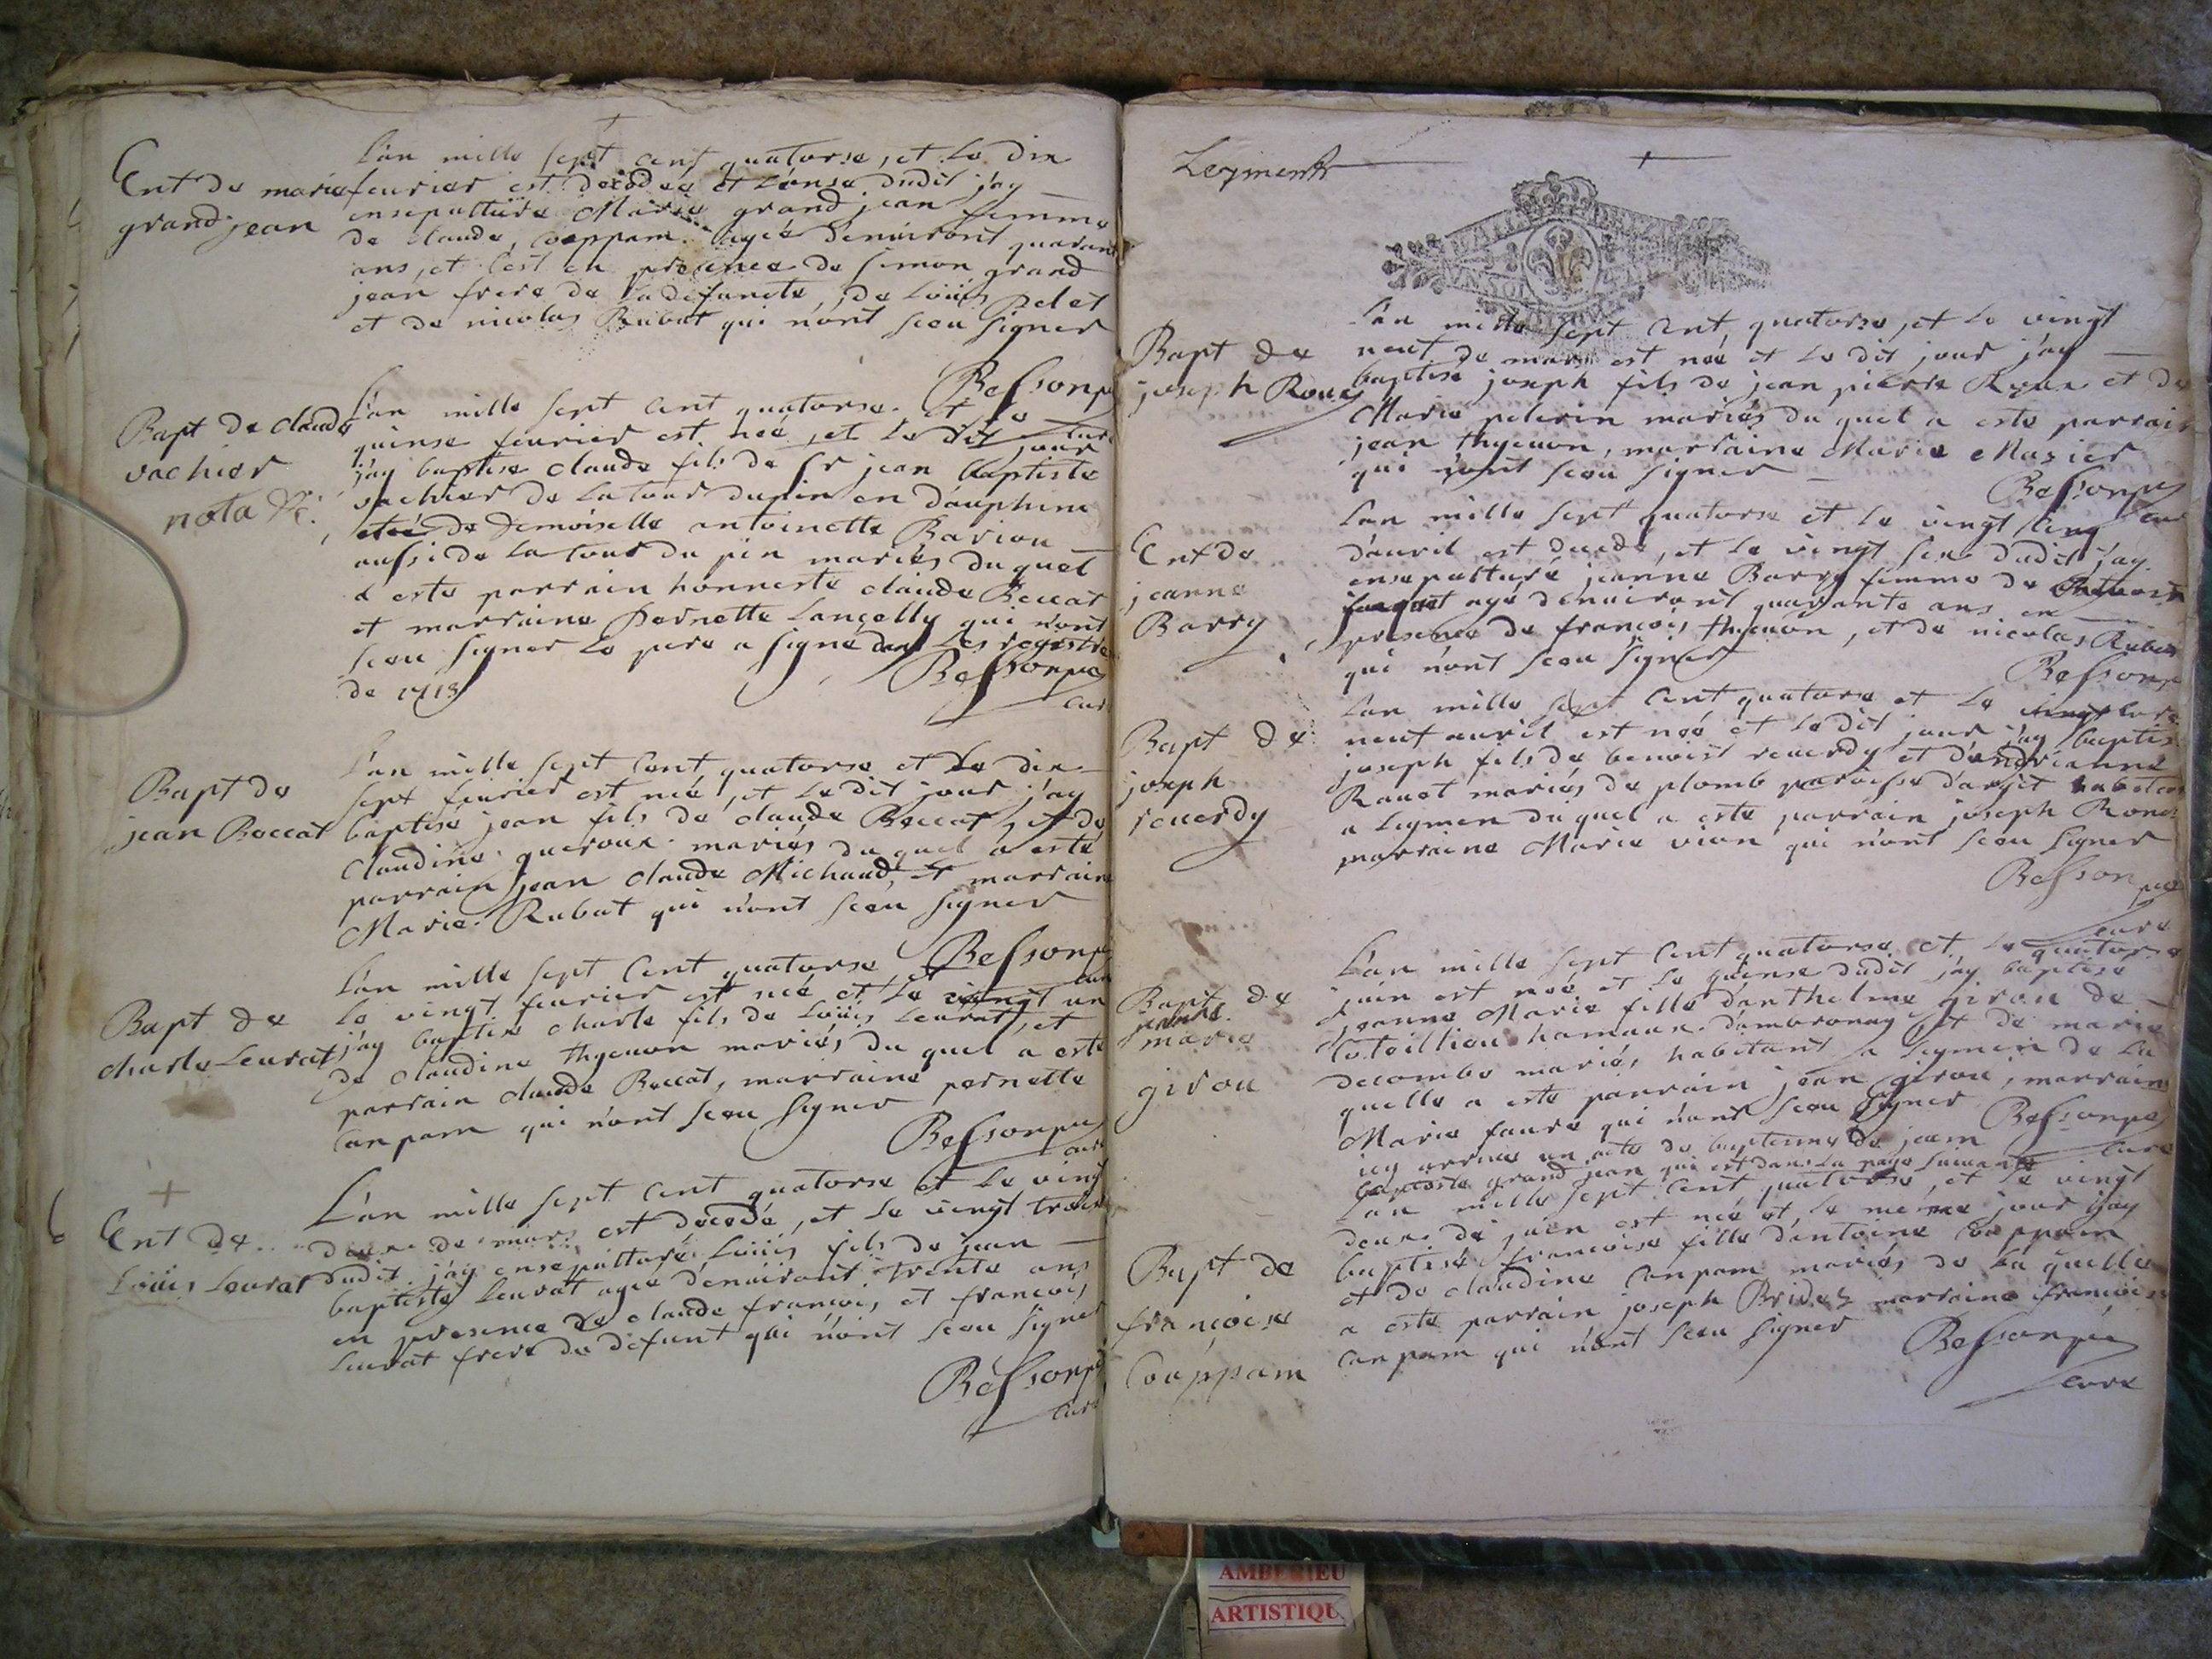 L'an mille sept cent quatorse, et le dix
Ent de marie grand jean
feurier est décédée et l'onse dudit j'ay
ensepulture Marie grand jean femme
de claude, coappam agée denuiront quarante
ans, et c'est en presence de simon grand
jean frere de la defuncte, de Loüis Pelet
et de nicolas Rubat qui n'ont sceu signer
Bessonpe
curé
Bapt de claude
vachier
nota &c.
L'an mille sept cent quatorse et le
quinse feurier est née, et le dit jour
j'ay baptise claude fils de sr jean baptiste
vachier de Latour dupin en dauphine
et de Demoiselle antoinette Bariou
aussi de la tour du pin mariés duquel
a este parrain honneste claude Beccat
et marraine Pernette Lançelly qui n'ont
sceu signer le pere a signé dans les registre
de 1713
Bessonpe
curé
Bapt de
jean Beccat
L'an mille sept cent quatorse et le dix
sept feurier est née, et le dit jour j'ay
baptisé jean fils de claude Beccat, et de
claudine queroux mariés du quel a este
parrain jean claude Michaud, et marraine
Marie Rubat qui n'ont sceu signer
Bessonpe
curé
Bapt de
charle Leurat
L'an mille sept cent quatorse et
le vingt feurier est née et le vingt un
j'ay baptise charle fils de Loüis Leurat, et
de claudine thyeuon mariés du quel a este
parrain claude Beccat, marraine pernette
Canpam qui n'ont sceu signer
Bessonpe
curé
Ent de
Loüis Leurat
L'an mille sept cent quatorse et le vingt
deux de mars est décédé, et le vingt trois
dudit j'ay ensepulturé Loüis fils de jean
baptiste Leurat agé denuiront trente ans
en presence de claude francois, et francois
Leurat frere du défunt qui n'ont sceu signer
Bessonpe
curé
Leyment
Bapt de
joseph Roux
L'an mille sept cent quatorse, et le vingt
neuf de mars est née et le dit jour j'ay
baptisé joseph fils de jean pierre Roux et de
Marie pelerin mariés du quel a este parrain
jean thyeuon, marraine Marie Mazier
qui n'ont sceu signer
Bessonpe
curé
Ent de
jeanne
Barry
L'an mille sept quatorse et le vingt cinq
d'auril est decede, et le vingt six dudit j'ay
ensepulturé jeanne Barry femme de
agé denuiront quarante ans en
presence de francois thyeuon, et de nicolas Rubat
qui n'ont sceu signer
Bessonpe
Bapt de
joseph
reuerdy
L'an mille sept cent quatorse et le
neuf auril est née et le dit jour j'ay baptisé
joseph fils de benoist reuerdy et d'andrianne
Rauet mariés de plomb paroisse d'argit habitant
a Leymen du quel a este parrain joseph Ronet
marraine Marie vian qui n'ont sceu signer
Bessonpe
curé
Bapt de
jeanne
marie
girou
L'an mille sept cent quatorse et le quatorse
juin est née et le quinse dudit j'ay baptisé
jeanne Marie fille d'anthelme girou de
Cotoillion hamaux d'ambronay et de marie
decombe mariés habitant a Leymen de la
quelle a este parrain jean girou, marraine
Marie faure qui n'ont sceu signer
Bessonpe
curé
icy arriue un acte de baptesme de jean
baptiste grand jean qui est dans la page suiuante
Bapt de
françoise
Coappam
L'an mille sept cent quatorse, et le vingt
deux de juin est née et le méme jour j'ay
baptisé francoise fille d'antoine coappam
et de claudine Canpam mariés de la quelle
a este parrain joseph Bridet marraine francoise
Canpam qui n'ont sceu signer
Bessonpe
curé
AMBERIEU
ARTISTIQU